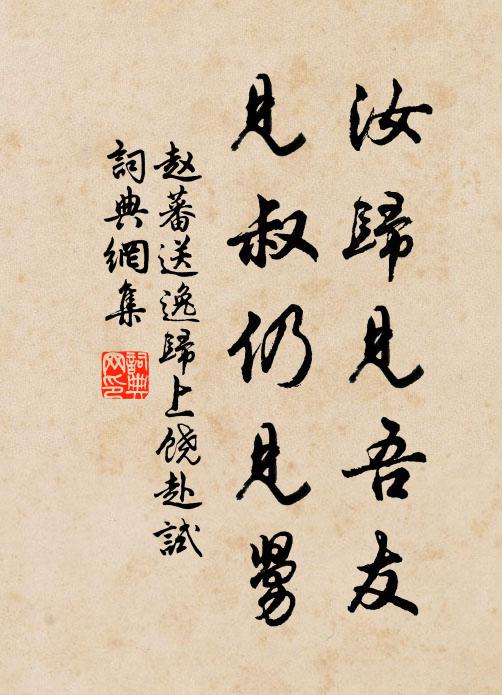 汝歸見吾友
見叔仍見舅
赵蕃送逸歸上饶赴試
詞典網集
詞典网印